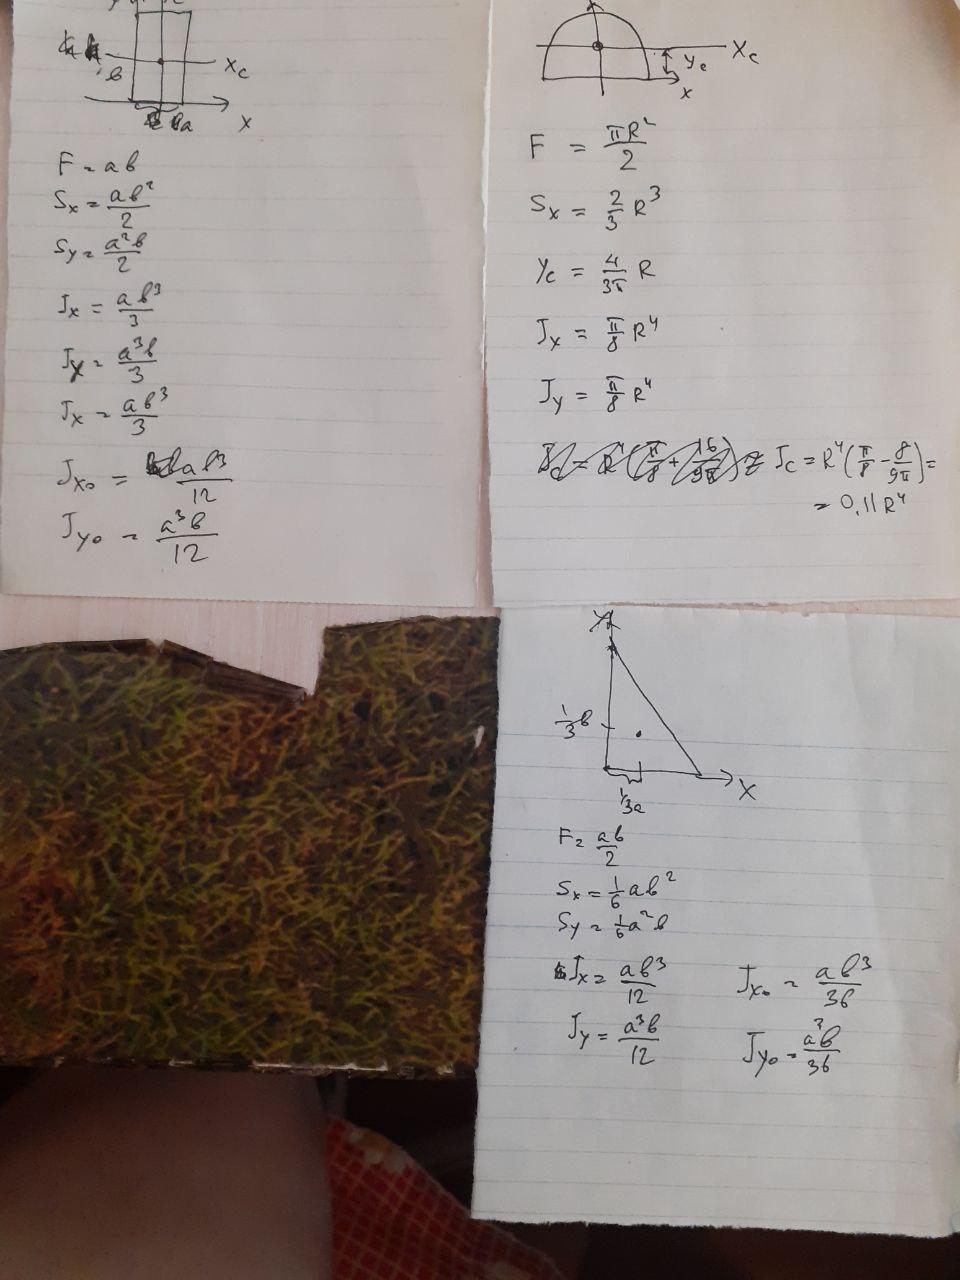 в
Xc
a
X
F = aв
Sx = aв²/2
Sy = a²в/2
Jx = aв³/3
Jy = a³в/3
Jx = aв³/3
Jx₀ = aв³/12
Jy₀ = a³в/12
Xc
yc
x
F = πR²/2
Sx = 2/3 R³
yc = 4/3π R
Jx = π/8 R⁴
Jy = π/8 R⁴
Jc = R⁴(π/8 - 8/9π) =
= 0,11R⁴
1/3в
X
1/3a
F = aв/2
Sx = 1/6 aв²
Sy = 1/6 a²в
Jx = aв³/12
Jx₀ = aв³/36
Jy = a³в/12
Jy₀ = a³в/36